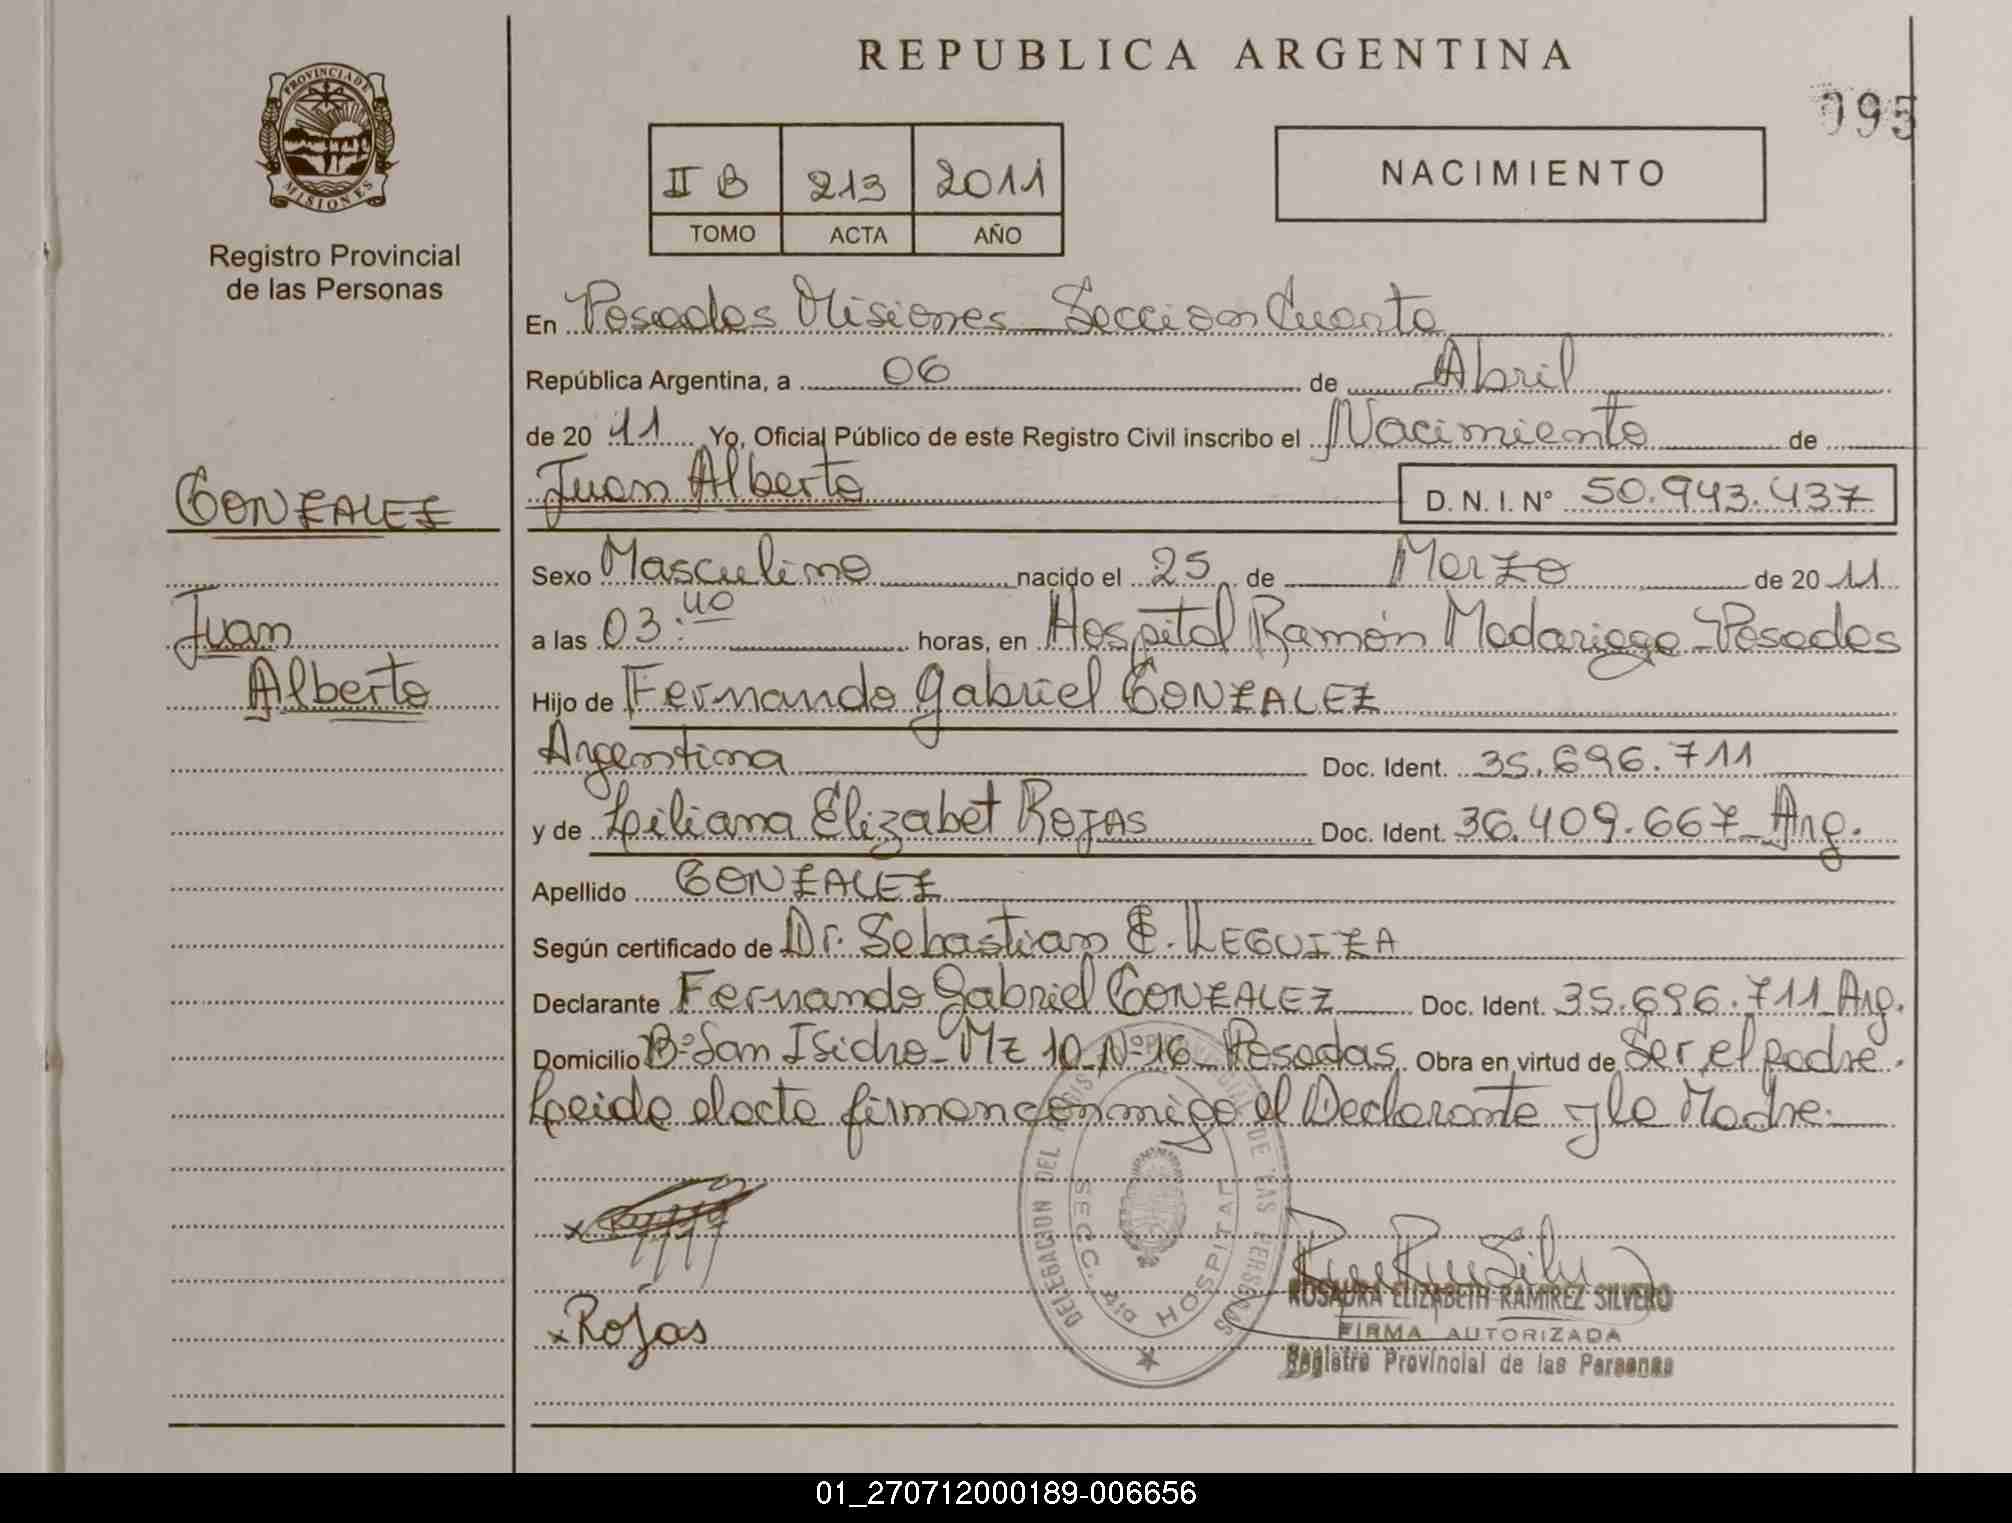 REPUBLICA ARGENTINA
195
PROVINCIA DE
MISIONES
Registro Provincial
de las Personas
II B 213 2011
TOMO ACTA AÑO
NACIMIENTO
En Posadas Misiones Seccion Cuarta
República Argentina, a 06 de Abril
de 20 11 Yo, Oficial Público de este Registro Civil inscribo el Nacimiento de
GONZALEZ
Juan Alberto D. N. I. Nº 50.943.437
Sexo Masculino nacido el 25 de Marzo de 20 11
Juan
a las 03:40 horas, en Hospital Ramón Madariaga - Posadas
Alberto
Hijo de Fernando Gabriel GONZALEZ
Argentina Doc. Ident. 35.696.711
y de Liliana Elizabet ROJAS Doc. Ident. 36.409.667 - Arg.
Apellido GONZALEZ
Según certificado de Dr. Sebastian E. LEGUIZA
Declarante Fernando Gabriel GONZALEZ Doc. Ident. 35.696.711 - Arg.
Domicilio Bº San Isidro - Mz 10 - Nº 16 - Posadas. Obra en virtud de Ser el padre.
Leida el acta firman conmigo el Declarante y la Madre.
x
x Rojas
DELEGACION DEL REGISTRO PROVINCIAL DE LAS PERSONAS
SECC. 4ta HOSPITAL
ROSAURA ELIZABETH RAMIREZ SILVERO
FIRMA AUTORIZADA
Registro Provincial de las Personas
01_270712000189-006656